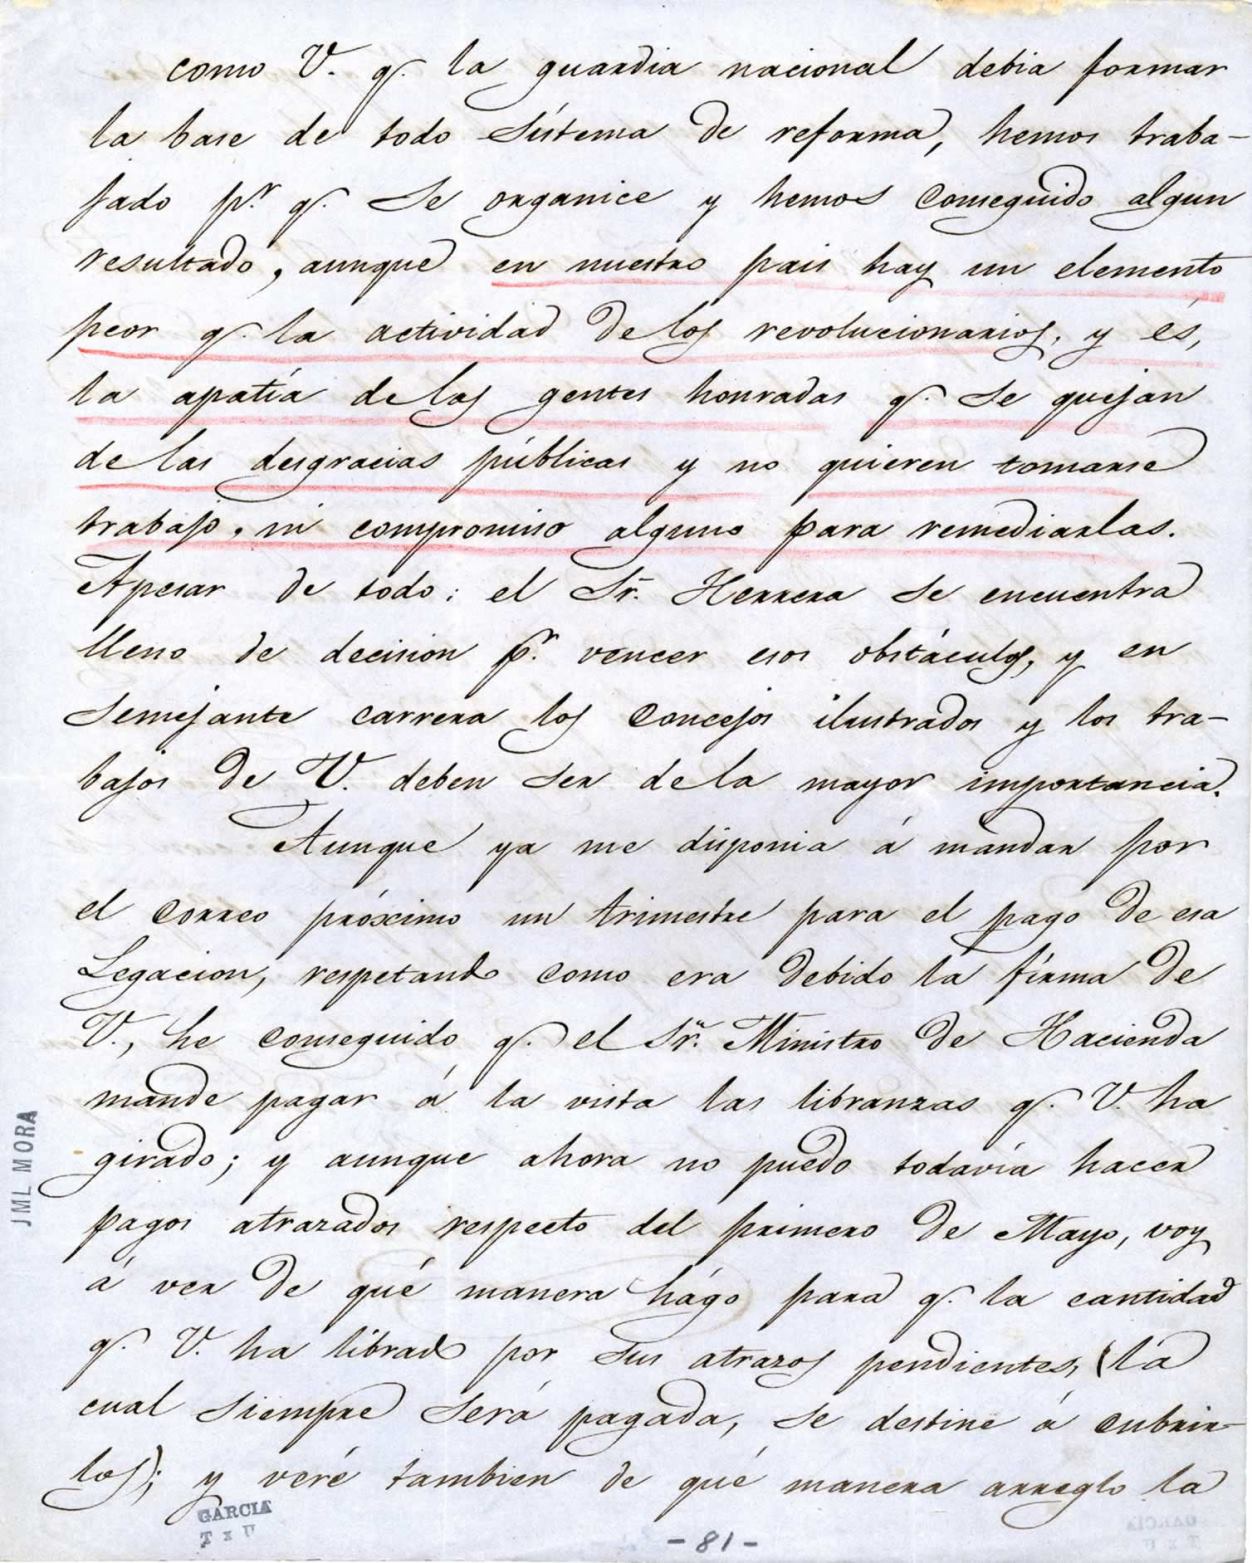 como V. q. la guardia nacional debia formar
la base de todo sistema de reforma, hemos traba-
jado pr. q. se organice y hemos conseguido algun
resultado, aunque en nuestro pais hay un elemento
peor q. la actividad de los revolucionarios, y és,
la apatía de las gentes honradas q. se quejan
de las desgracias públicas y no quieren tomarse
trabajo, ni compromiso alguno para remediarlas.
Apesar de todo: el Sr. Herrera se encuentra
lleno de decision pr. vencer esos obstáculos, y en
semejante carrera los concejos ilustrados y los tra-
bajos de V. deben ser de la mayor importancia.
Aunque ya me disponia á mandar por
el correo próximo un trimestre para el pago de esa
Legacion, respetando como era debido la firma de
V., he conseguido q. el Sr. Ministro de Hacienda
mande pagar á la vista las libranzas q. V. ha
girado; y aunque ahora no puedo todavía hacer
pagos atrazados respecto del primero de Mayo, voy
á ver de qué manera hágo para q. la cantidad
q. V. ha librado por sus atrazos pendientes, (la
cual siempre será pagada, se destine á cubrir-
los); y veré tambien de qué manera arreglo la
JML MORA
GARCIA
T x U
-81-